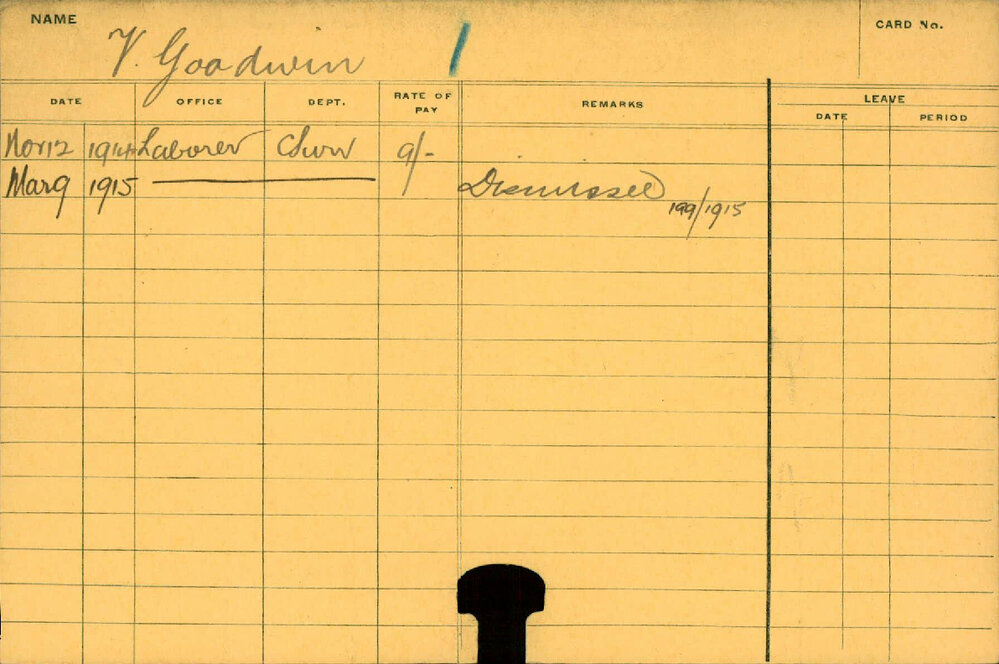 NAME
V. Goodwin
CARD No.
DATE OFFICE DEPT. RATE OF PAY REMARKS LEAVE
DATE PERIOD
Nov 12 1914 Laborer 9/-
Mar 9 1915 Dismissed
199/1915